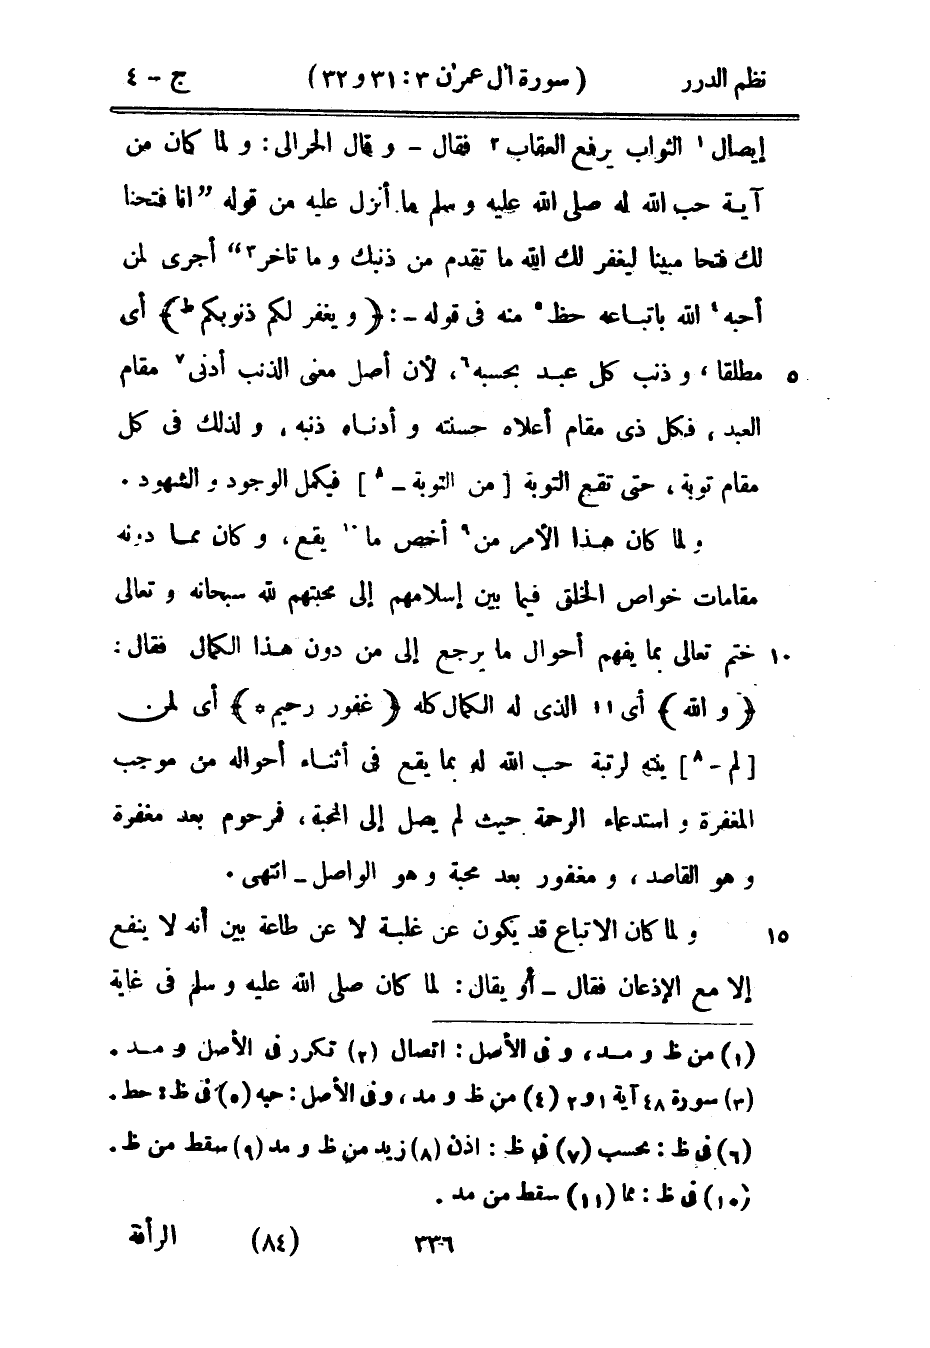 نظم الدرر ( سورة اٰل عمرٰن ٣ : ٣١ و ٣٢ ) ج - ٤
إيصال ١ الثواب برفع العقاب ٢ فقال - و قال الحرالى : و لما كان من
آية حب الله له صلى الله عليه و سلم ما أنزل عليه من قوله ” انا فتحنا
لك فتحا مبينا ليغفر لك الله ما تقدم من ذنبك و ما تاخر ٣ “ أجرى لمن
أحبه ٤ الله باتباعه حظ ٥ منه فى قوله - : ﴿ و يغفر لكم ذنوبكم ط ﴾ أى
٥ مطلقا ، و ذنب كل عبد بحسبه ٦ ، لأن أصل معنى الذنب أدنى ٧ مقام
العبد ، فكل ذى مقام أعلاه حسنته و أدناه ذنبه ، و لذلك فى كل
مقام توبة ، حتى تقع التوبة [ من التوبة - ٨ ] فيكمل الوجود و الشهود .
و لما كان هذا الأمر من ٩ أخص ما ١٠ يقع ، و كان مما دونه
مقامات خواص الخلق فيما بين إسلامهم إلى محبتهم لله سبحانه و تعالى
١٠ ختم تعالى بما يفهم أحوال ما يرجع إلى من دون هذا الكمال فقال :
﴿ و الله ﴾ أى ١١ الذى له الكمال كله ﴿ غفور رحيم ه ﴾ أى لمن
[ لم - ٨ ] ينته لرتبة حب الله له بما يقع فى أثناء أحواله من موجب
المغفرة و استدعاء الرحمة حيث لم يصل إلى المحبة ، فمرحوم بعد مغفرة
و هو القاصد ، و مغفور بعد محبة و هو الواصل - انتهى .
١٥ و لما كان الاتباع قد يكون عن غلبة لا عن طاعة بين أنه لا ينفع
إلا مع الإذعان فقال - أو يقال : لما كان صلى الله عليه و سلم فى غاية
(١) من ظ و مد ، و فى الأصل : اتصال (٢) تكرر فى الأصل و مد .
(٣) سورة ٤٨ آية ١ و ٢ (٤) من ظ و مد ، و فى الأصل : حبه (٥) فى ظ : حط .
(٦) فى ظ : بحسب (٧) فى ظ : اذن (٨) زيد من ظ و مد (٩) سقط من ظ .
(١٠) فى ظ : مما (١١) سقط من مد .
٣٣٦ (٨٤) الرأفة